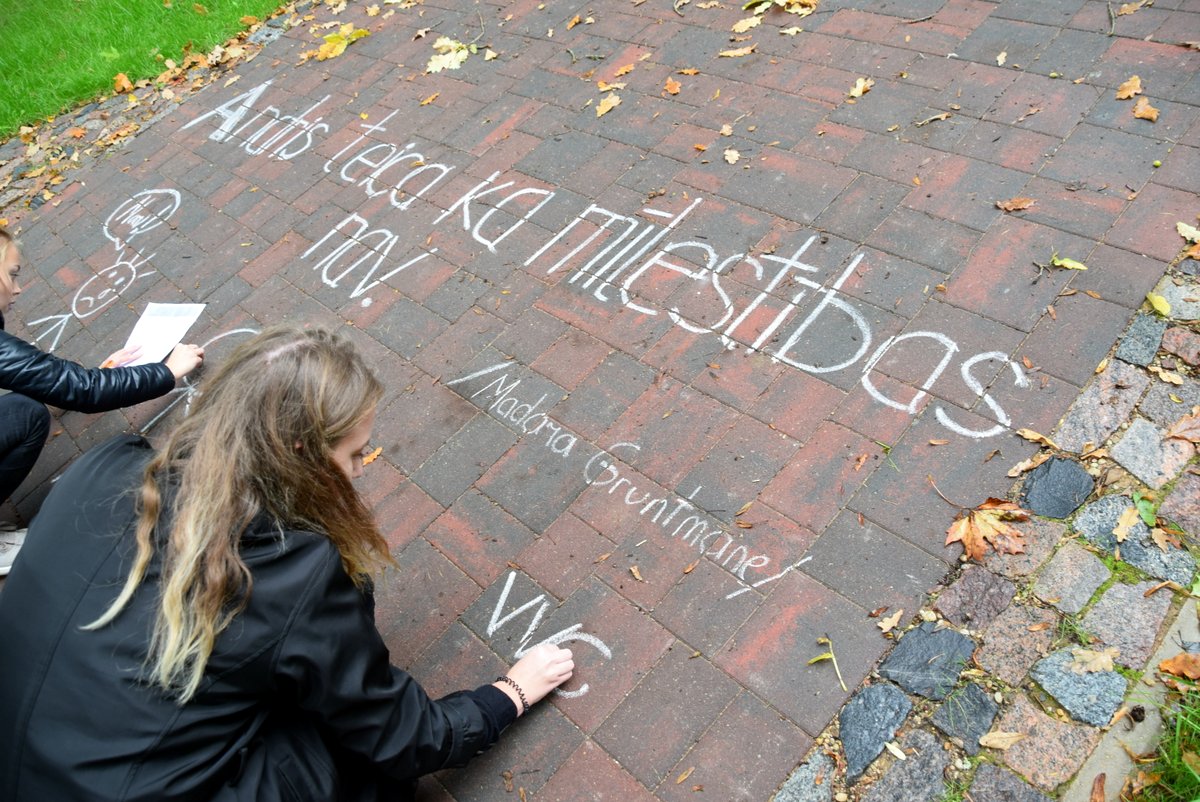 Andris teica ka mīlestības
nav.
/Madara Gruntmane/
VVC
Nav!